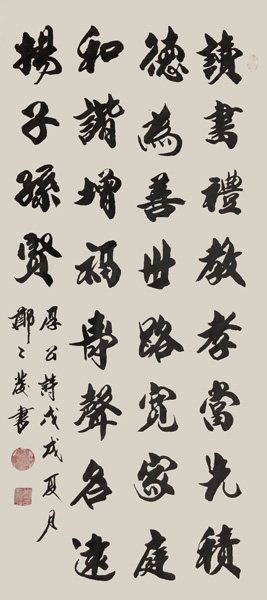 讀書禮教孝當先積
德為善世路寬家庭
和諧增福壽聲名遠
揚子孫賢
厚公詩戊戌夏月